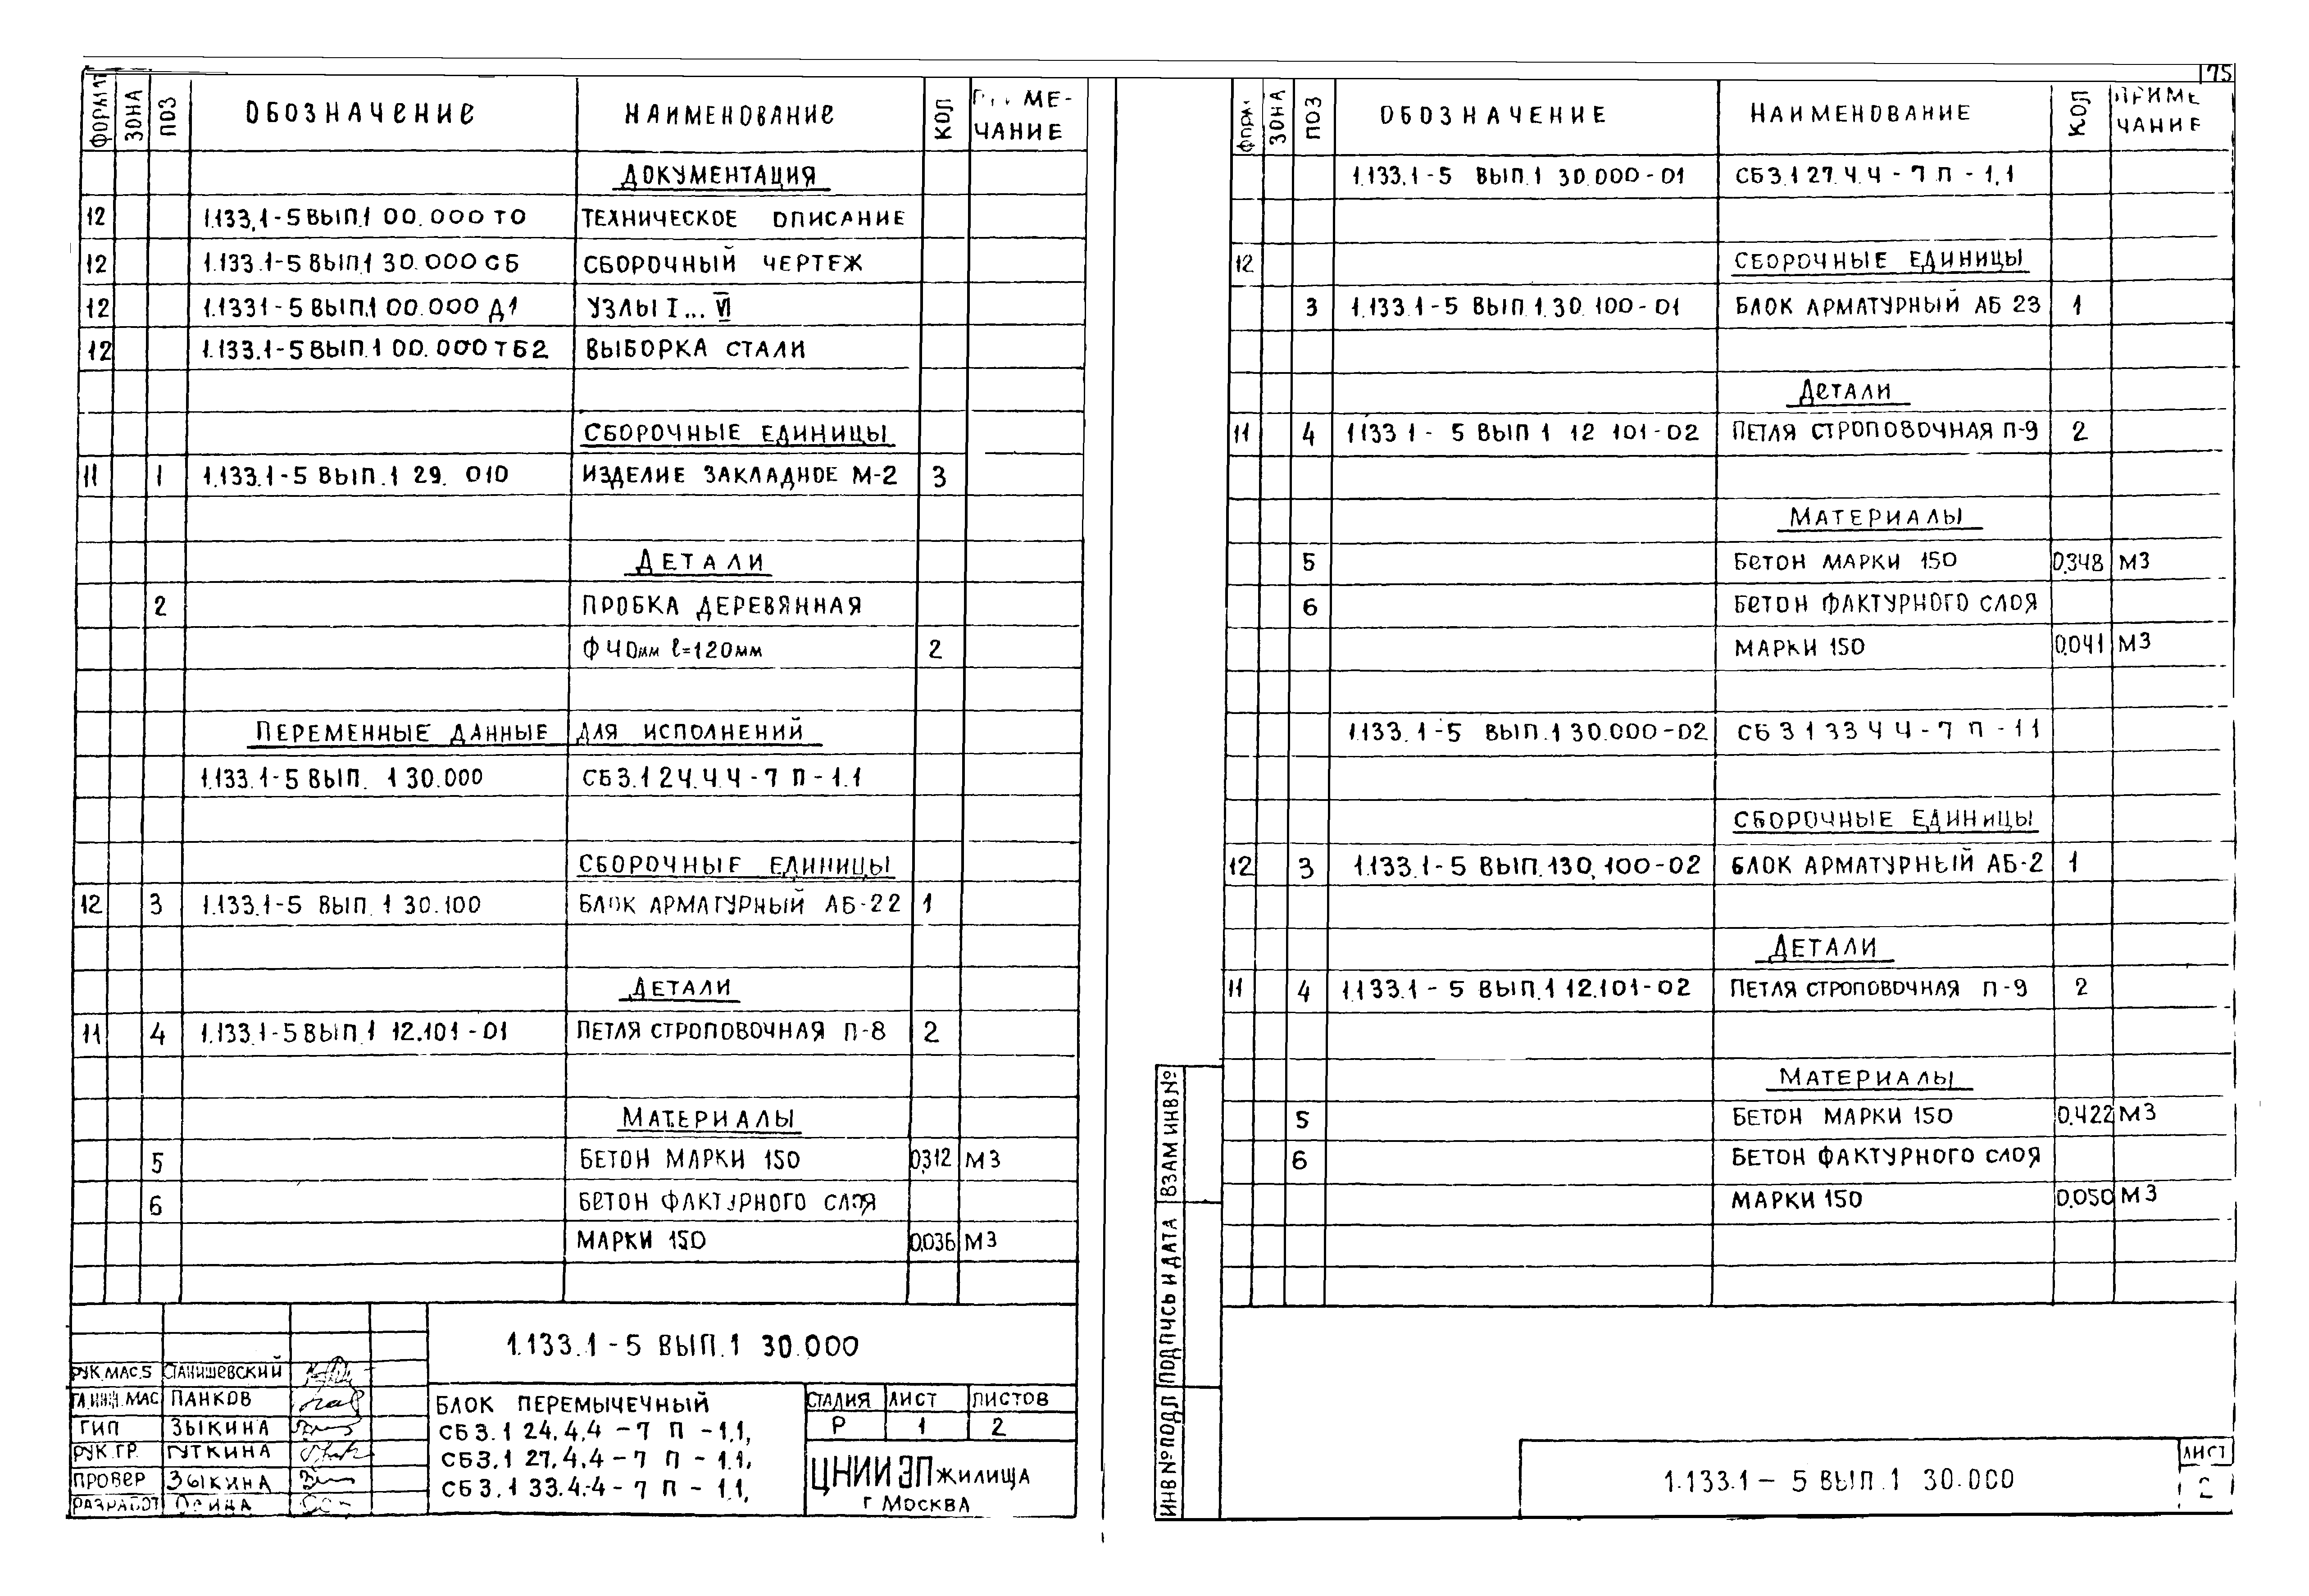 75
ФОРМАТ ЗОНА ПОЗ ОБОЗНАЧЕНИЕ НАИМЕНОВАНИЕ КОЛ
МЕ-
ЧАНИЕ
ДОКУМЕНТАЦИЯ
12 1.133.1-5 ВЫП.1 00.000 ТО ТЕХНИЧЕСКОЕ ОПИСАНИЕ
12 1.133.1-5 ВЫП.1 30.000 СБ СБОРОЧНЫЙ ЧЕРТЕЖ
12 1.1331-5 ВЫП.1 00.000 Д1 УЗЛЫ I ... VI
12 1.133.1-5 ВЫП.1 00.000 ТБ2 ВЫБОРКА СТАЛИ
СБОРОЧНЫЕ ЕДИНИЦЫ
11 1 1.133.1-5 ВЫП.1 29. 010 ИЗДЕЛИЕ ЗАКЛАДНОЕ М-2 3
ДЕТАЛИ
2 ПРОБКА ДЕРЕВЯННАЯ
Ф40мм ℓ=120мм 2
ПЕРЕМЕННЫЕ ДАННЫЕ ДЛЯ ИСПОЛНЕНИЙ
1.133.1-5 ВЫП. 1 30.000 СБ3.1 24.4.4-7 П-1.1
СБОРОЧНЫЕ ЕДИНИЦЫ
12 3 1.133.1-5 ВЫП. 1 30.100 БЛОК АРМАТУРНЫЙ АБ-22 1
ДЕТАЛИ
11 4 1.133.1-5 ВЫП.1 12.101-01 ПЕТЛЯ СТРОПОВОЧНАЯ П-8 2
МАТЕРИАЛЫ
5 БЕТОН МАРКИ 150 0,312 М3
6 БЕТОН ФАКТУРНОГО СЛОЯ
МАРКИ 150 0,036 М3
1.133.1-5 ВЫП.1 30.000
РУК.МАС.5 СТАНИШЕВСКИЙ
ГЛ.ИНЖ.МАС ПАНКОВ
ГИП ЗЫКИНА
РУК.ГР. ГУТКИНА
ПРОВЕР ЗЫКИНА
РАЗРАБОТ
БЛОК ПЕРЕМЫЧЕЧНЫЙ
СБ3.1 24.4.4-7 П-1.1,
СБ3.1 27.4.4-7 П-1.1,
СБ3.1 33.4.4-7 П-1.1,
СТАДИЯ ЛИСТ ЛИСТОВ
Р 1 2
ЦНИИЭП ЖИЛИЩА
Г МОСКВА
ЗОНА ПОЗ ОБОЗНАЧЕНИЕ НАИМЕНОВАНИЕ КОЛ ПРИМЕ
ЧАНИЕ
1.133.1-5 ВЫП.1 30.000-01 СБ3.1 27.4.4-7 П-1,1
12 СБОРОЧНЫЕ ЕДИНИЦЫ
3 1.133.1-5 ВЫП 1.30.100-01 БЛОК АРМАТУРНЫЙ АБ 23 1
ДЕТАЛИ
11 4 1133 1-5 ВЫП 1 12 101-02 ПЕТЛЯ СТРОПОВОЧНАЯ П-9 2
МАТЕРИАЛЫ
5 БЕТОН МАРКИ 150 0,348 М3
6 БЕТОН ФАКТУРНОГО СЛОЯ
МАРКИ 150 0,041 М3
1.133.1-5 ВЫП.1 30.000-02 СБ 3 1 33 4 4-7 П-11
СБОРОЧНЫЕ ЕДИНИЦЫ
12 3 1.133.1-5 ВЫП.130.100-02 БЛОК АРМАТУРНЫЙ АБ-2 1
ДЕТАЛИ
11 4 1.133.1-5 ВЫП.1 12.101-02 ПЕТЛЯ СТРОПОВОЧНАЯ П-9 2
МАТЕРИАЛЫ
5 БЕТОН МАРКИ 150 0.422 М3
6 БЕТОН ФАКТУРНОГО СЛОЯ
МАРКИ 150 0.050 М3
ИНВ №ПОДЛ ПОДПИСЬ И ДАТА ВЗАМ ИНВ №
1.133.1-5 ВЫП.1 30.000
ЛИСТ
2